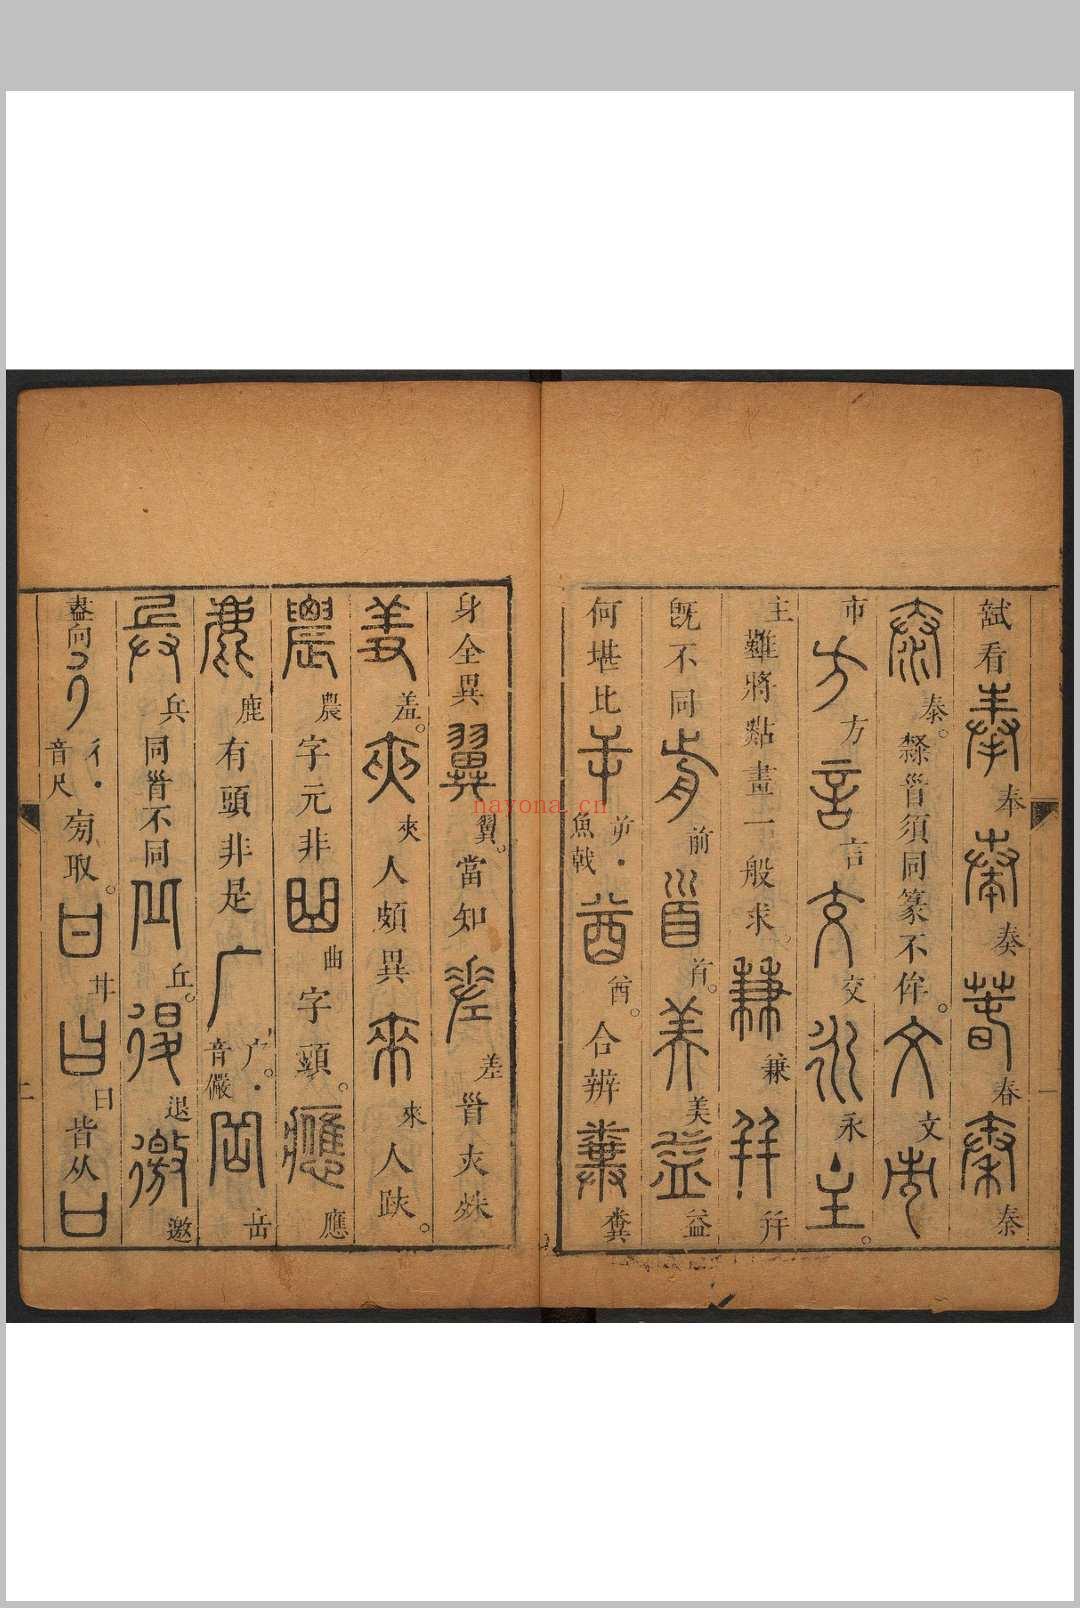 試看奉奏春秦
泰。隸首須同篆不侔。文
市方言交永
主。難將點畫一般求。兼并
既不同前首。美益
何堪比𦫳魚戟酋。合辨糞
身全異翼。當知差首夾殊
羞。夾人頗異來人趺。
農字元非曲字頭。應
鹿有頭非是广。音儼岳
兵同首不同丘。退邀
盍向彳音尺旁取。甘曰皆从
nayona.cn